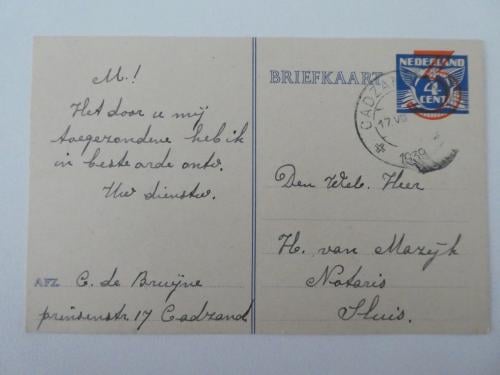 M.!
Het door u mij
toegezondene heb ik
in beste orde ontv.
Uw dienstw.
AFZ. C. de Bruijne
prinsenstr. 17 Cadzand
BRIEFKAART
NEDERLAND
4
CENT
3
CADZA
17.VII
1939
Den Wel. Heer
H. van Mazijk
Notaris
Sluis.